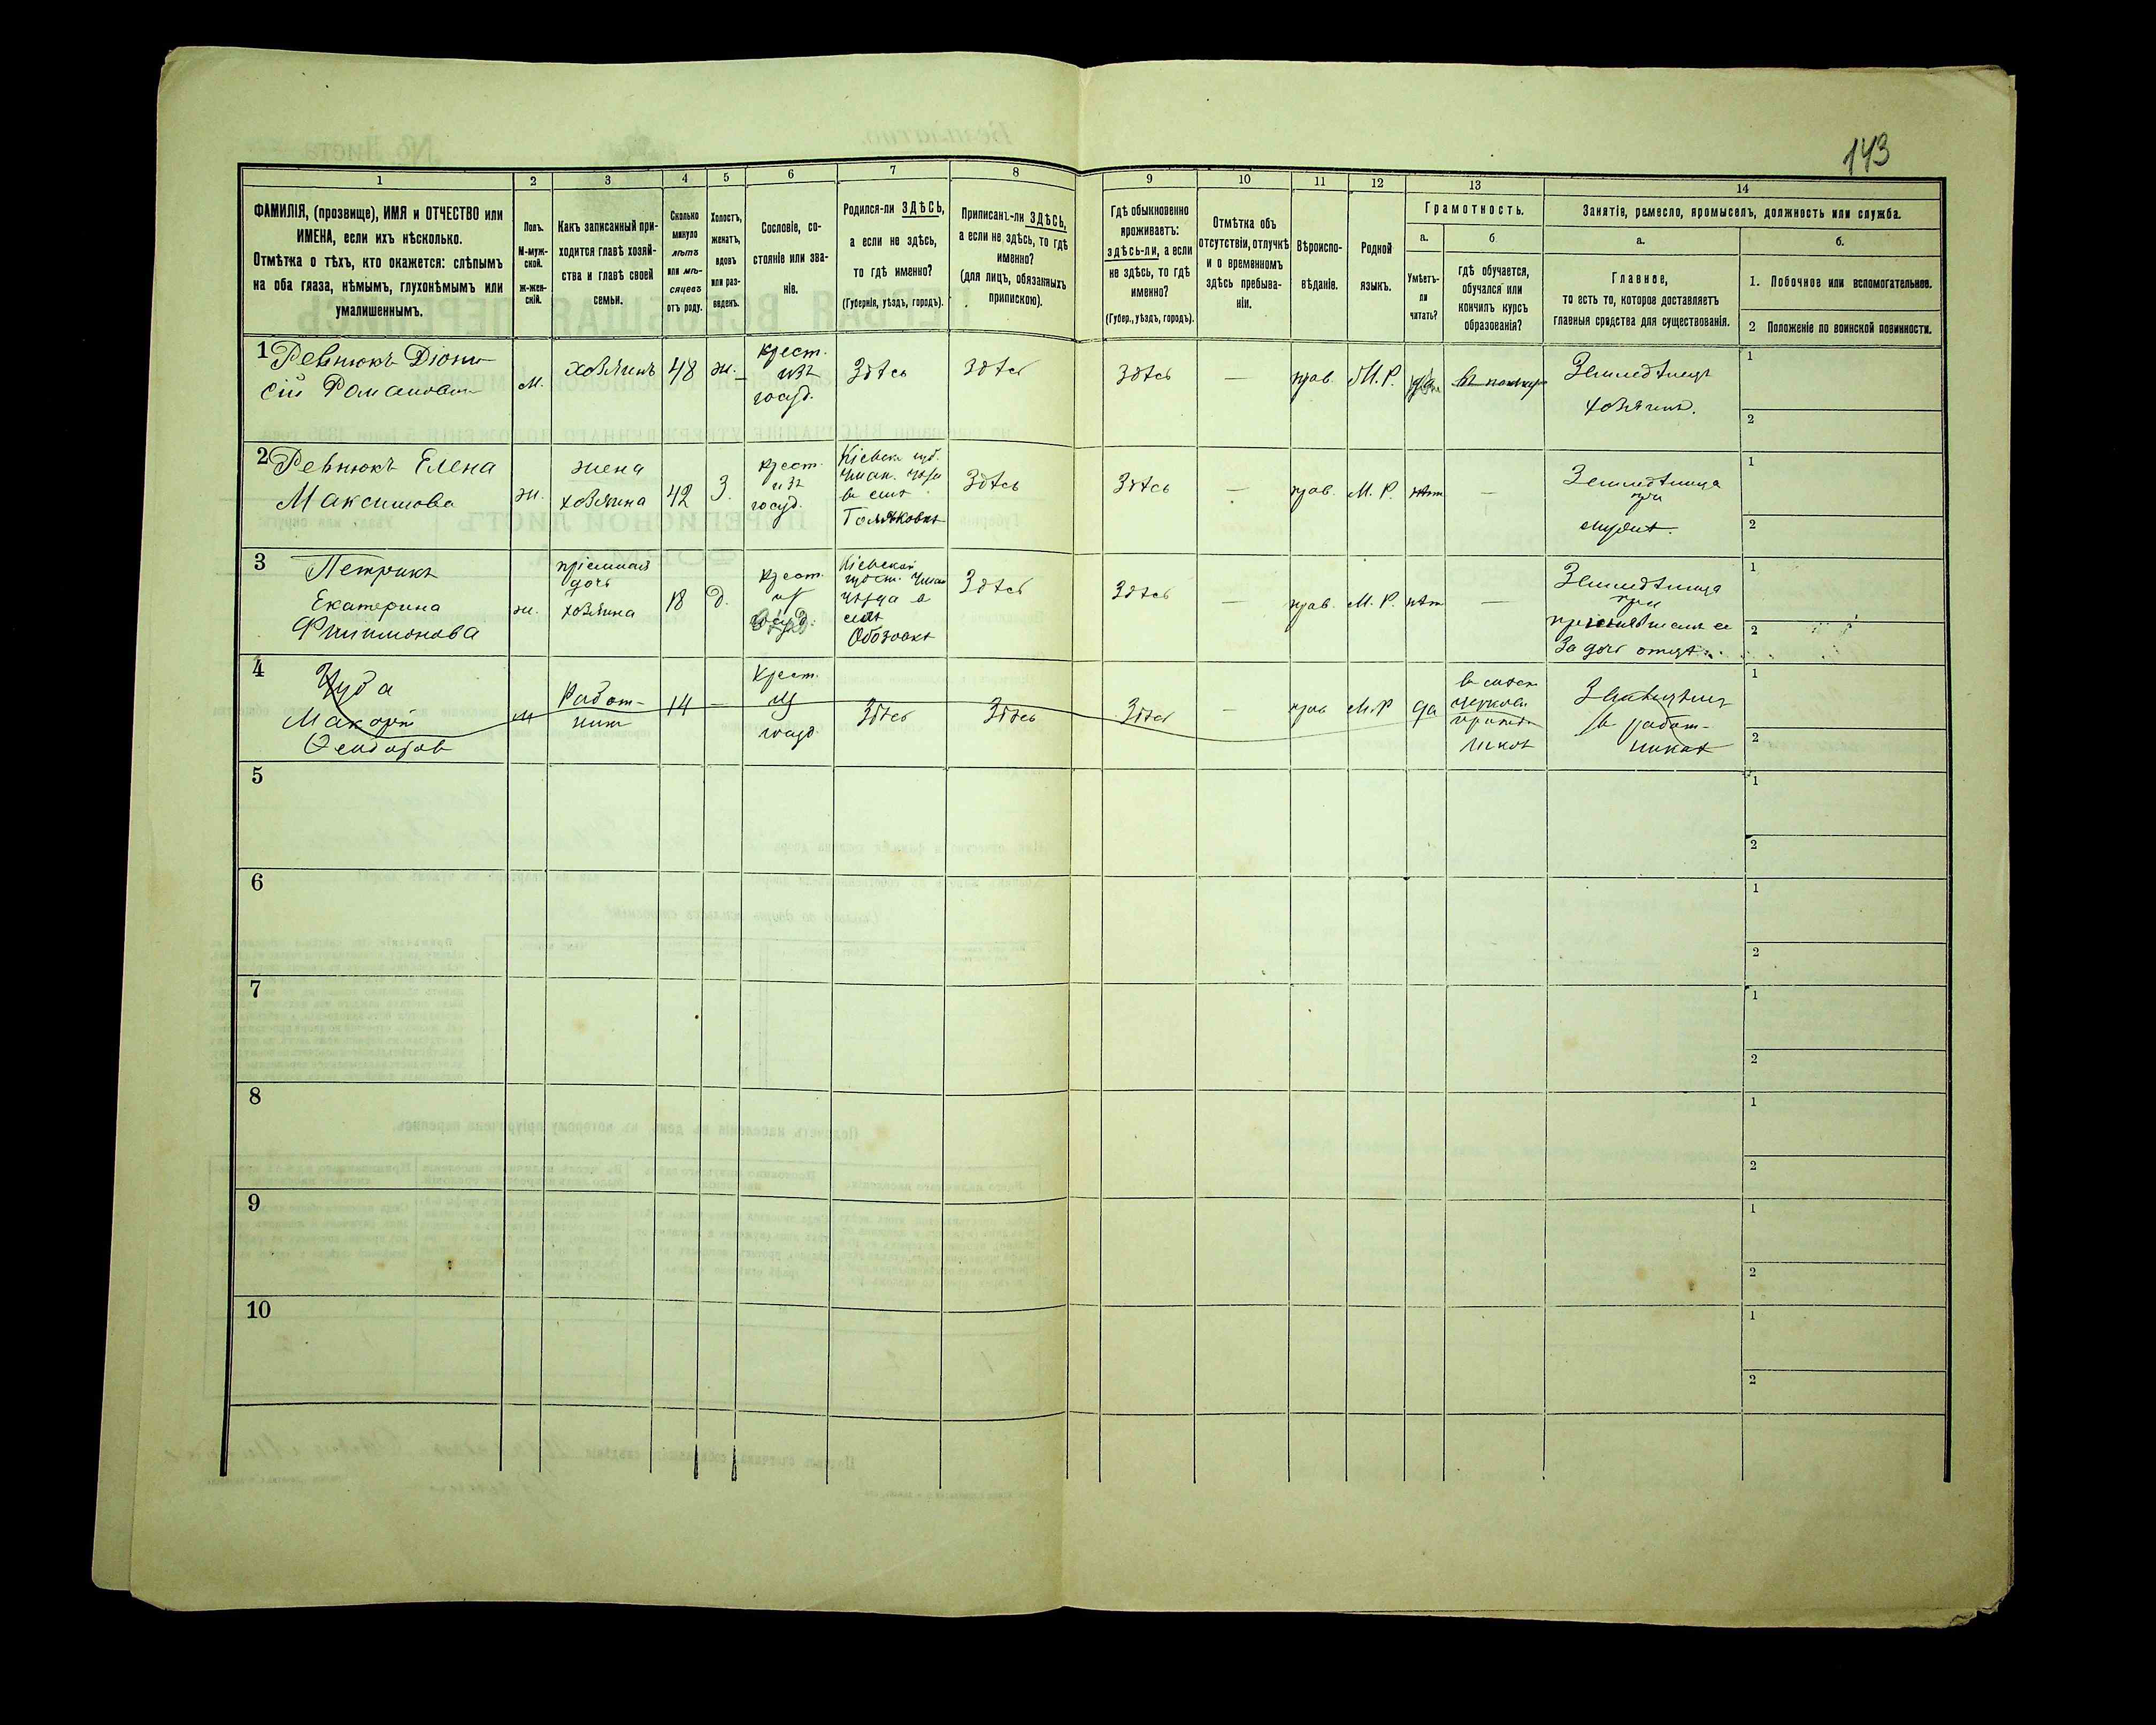 143
1
2
3
4
5
6
7
8
9
10
11
12
13
14
ФАМИЛІЯ, (прозвище), ИМЯ и ОТЧЕСТВО или
ИМЕНА, если ихъ нѣсколько.
Отмѣтка о тѣхъ, кто окажется: слѣпымъ
на оба глаза, нѣмымъ, глухонѣмымъ или
умалишеннымъ.
Полъ.
М-муж-
ской.
Ж-жен-
скій.
Какъ записанный при-
ходится главѣ хозяй-
ства и главѣ своей
семьи.
Сколько
минуло
лѣтъ
или мѣ-
сяцевъ
отъ роду.
Холостъ,
женатъ,
вдовъ
или раз-
веденъ.
Сословіе, со-
стояніе или зва-
ніе.
Родился-ли ЗДѢСЬ,
а если не здѣсь,
то гдѣ именно?
(Губернія, уѣздъ, городъ).
Приписанъ-ли ЗДѢСЬ,
а если не здѣсь, то гдѣ
именно?
(для лицъ, обязанныхъ
припискою).
Гдѣ обыкновенно
проживаетъ:
здѣсь-ли, а если
не здѣсь, то гдѣ
именно?
(Губер., уѣздъ, городъ).
Отмѣтка объ
отсутствіи, отлучкѣ
и о временномъ
здѣсь пребыва-
ніи.
Вѣроиспо-
вѣданіе.
Родной
языкъ.
Грамотность.
а.
Умѣетъ-
ли
читать?
б
гдѣ обучается,
обучался или
кончилъ курсъ
образованія?
Занятіе, ремесло, промыселъ, должность или служба.
а.
Главное,
то есть то, которое доставляетъ
главныя средства для существованія.
б.
1. Побочное или вспомогательное.
2 Положеніе по воинской повинности.
1 Ревнюкъ Діони
сій Романовъ
м.
хозяинъ
48
ж.
крест.
изъ
госуд.
Здѣсь
Здѣсь
Здѣсь
—
прав.
М. Р.
Земледѣлецъ
хозяинъ.
1
2
2 Ревнюкъ Елена
Максимова
ж.
жена
хозяина
42
З.
крест.
изъ
госуд.
Кіевск. губ.
в селѣ
Здѣсь
Здѣсь
—
прав.
М. Р.
нѣт
—
Земледѣлица
при
мужѣ.
1
2
3 Петрикъ
Екатерина
Филимонова
ж.
пріемная
дочь
хозяина
18
Д.
крест.
из
госуд.
Кіевской
уѣзда в
селѣ
Здѣсь
Здѣсь
—
прав.
М. Р.
нѣт
—
Земледѣлица
при
За дочь отцѣ.
1
2
4
Макарій
м
Работ-
ник
14
—
Крест.
из
госуд
Здѣсь
Здѣсь
Здѣсь
—
прав
М. Р
да
в
церковн.
приход.
в работ-
никах
1
2
5
1
2
6
1
2
7
1
2
8
1
2
9
1
2
10
1
2